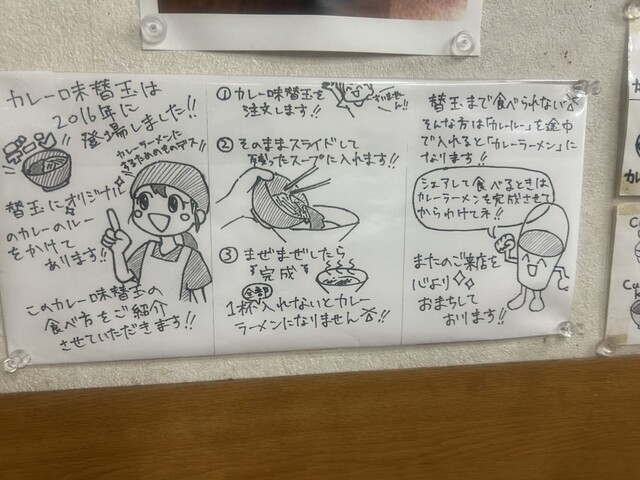 カレー味替玉は
2016年に
登場しました!!
カレーラーメンに
するためのものデス!!
替玉にオリジナル
のカレーのルー
をかけて
あります!!
このカレー味替玉の
食べ方をご紹介
させていただきます!!
① カレー味替玉を
注文します!!
すいませ
ん!!
② そのままスライドして
残ったスープに入れます!!
③ まぜまぜしたら
完成
全部
1杯入れないとカレー
ラーメンになりません!!
替玉まで食べられない
そんな方は「カレールー」を途中
で入れると「カレーラーメン」に
なります!!
シェアして食べるときは
カレーラーメンを完成させて
からわけてネ!!
またのご来店を
心より
おまちして
おります!!